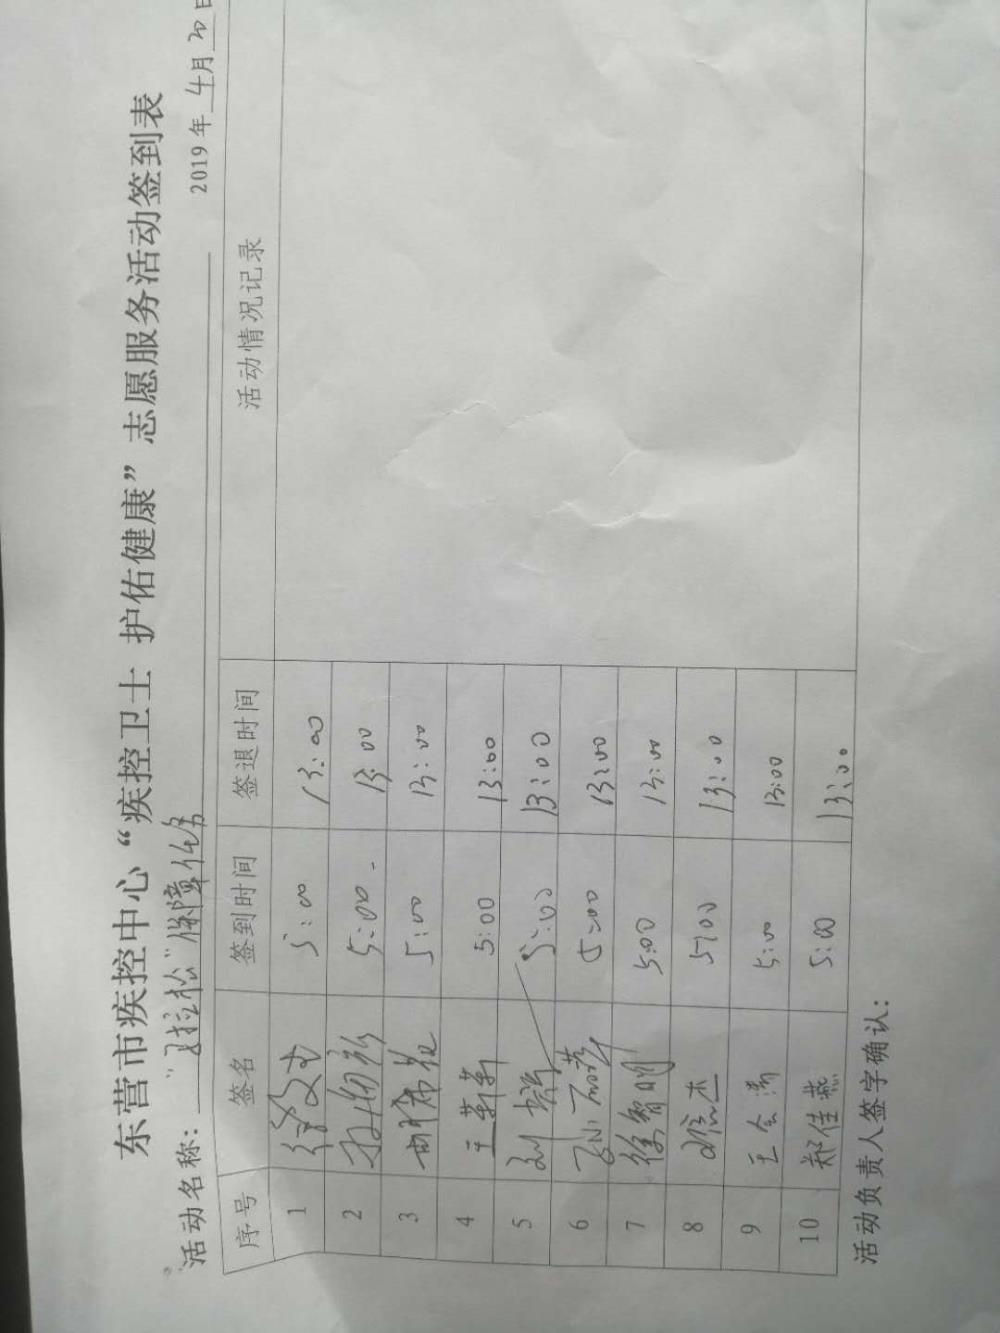 东营市疾控中心“疾控卫士 护佑健康”志愿服务活动签到表
活动名称：“马拉松”保障任务 2019年4月20日
序号 签名 签到时间 签退时间 活动情况记录
1 5:00 13:00
2 5:00 13:00
3 5:00 13:00
4 王莉莉 5:00 13:00
5 5:00 13:00
6 5:00 13:00
7 徐智明 5:00 13:00
8 5:00 13:00
9 王会 5:00 13:00
10 郑佳燕 5:00 13:00
活动负责人签字确认：